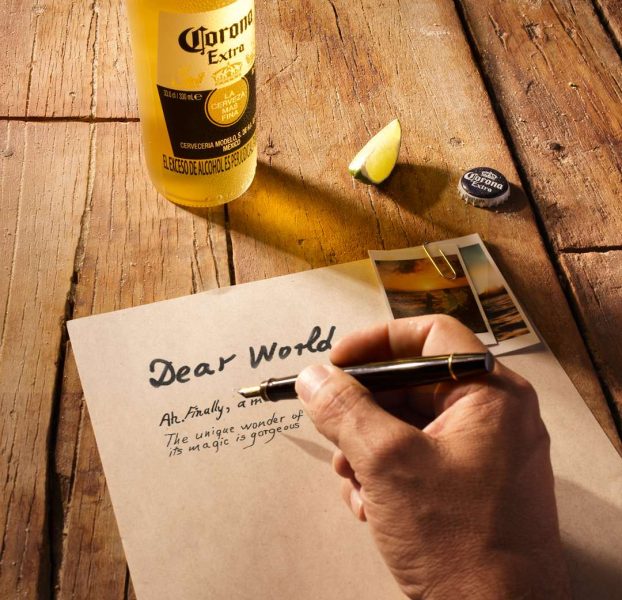 Corona
Extra
33.0 cl / 330 mL e
LA
CERVEZA
MAS
FINA
CERVECERIA MODELO, S.
MEXICO
EL EXCESO DE ALCOHOL ES PER
Corona
Extra
Dear World
Ah. Finally, a m
The unique wonder of
its magic is gorgeous